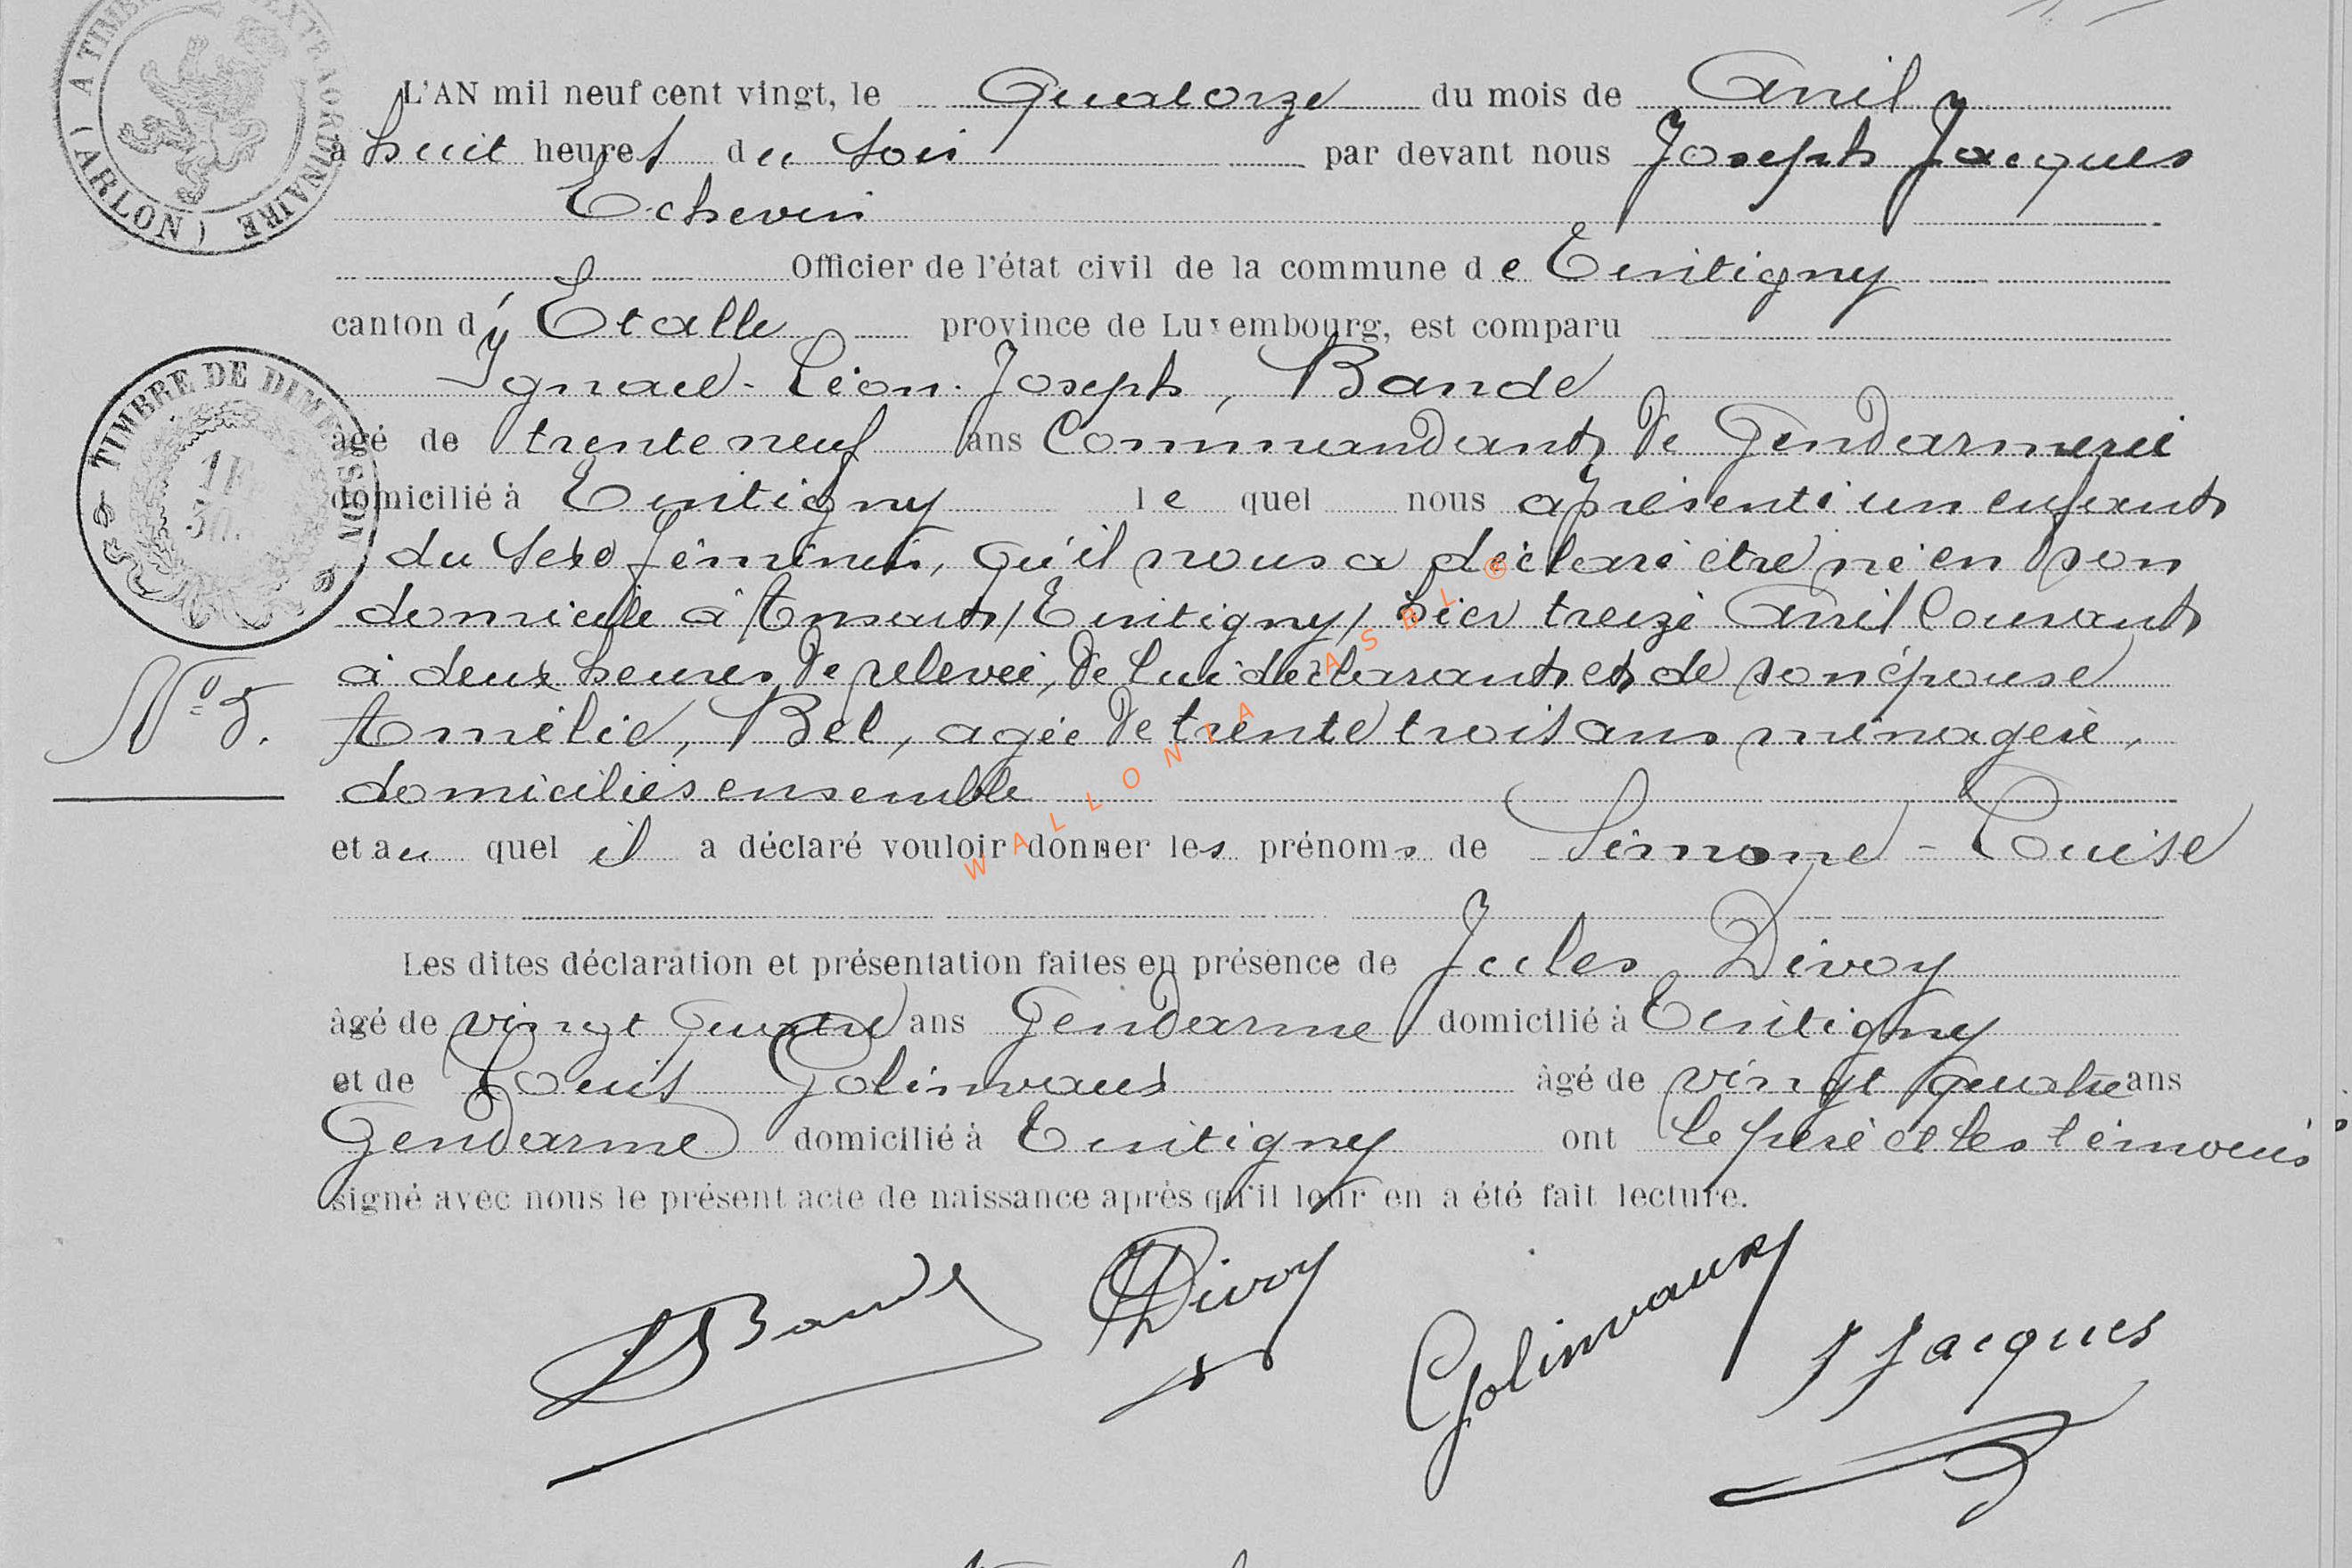 A TIMBRE EXTRAORDINAIRE (ARLON)
L'AN mil neuf cent vingt, le Quatorze du mois de Avril
à huit heures du Soir par devant nous Joseph Jacques
Echevin
Officier de l'état civil de la commune de Tintigny
canton d' Etalle province de Luxembourg, est comparu
Ignace-Léon-Joseph, Bande
âgé de trente neuf ans Commandant de Gendarmerie
TIMBRE DE DIMENSION
1F
30.
domicilié à Tintigny le quel nous a présenté un enfant
du Sexe féminin, Qu'il nous a déclaré être né en son
domicile à Ansart / Tintigny / hier treize Avril Courant
à deux heures de relevée, de lui déclarant et de son épouse
Nº 5.
Amélie, Bel, agée de trente trois ans ménagère,
domiciliés ensemble
et au quel il a déclaré vouloir donner les prénoms de Simone-Louise
Les dites déclaration et présentation faites en présence de Jules Divoy
âgé de vingt Quatre ans Gendarme domicilié à Tintigny
et de Louis Golinvaux âgé de vingt quatre ans
Gendarme domicilié à Tintigny ont le père et les témoins
signé avec nous le présent acte de naissance après qu'il leur en a été fait lecture.
Bande Divoy Golinvaux J Jacques
WALLONIA ASBL ®